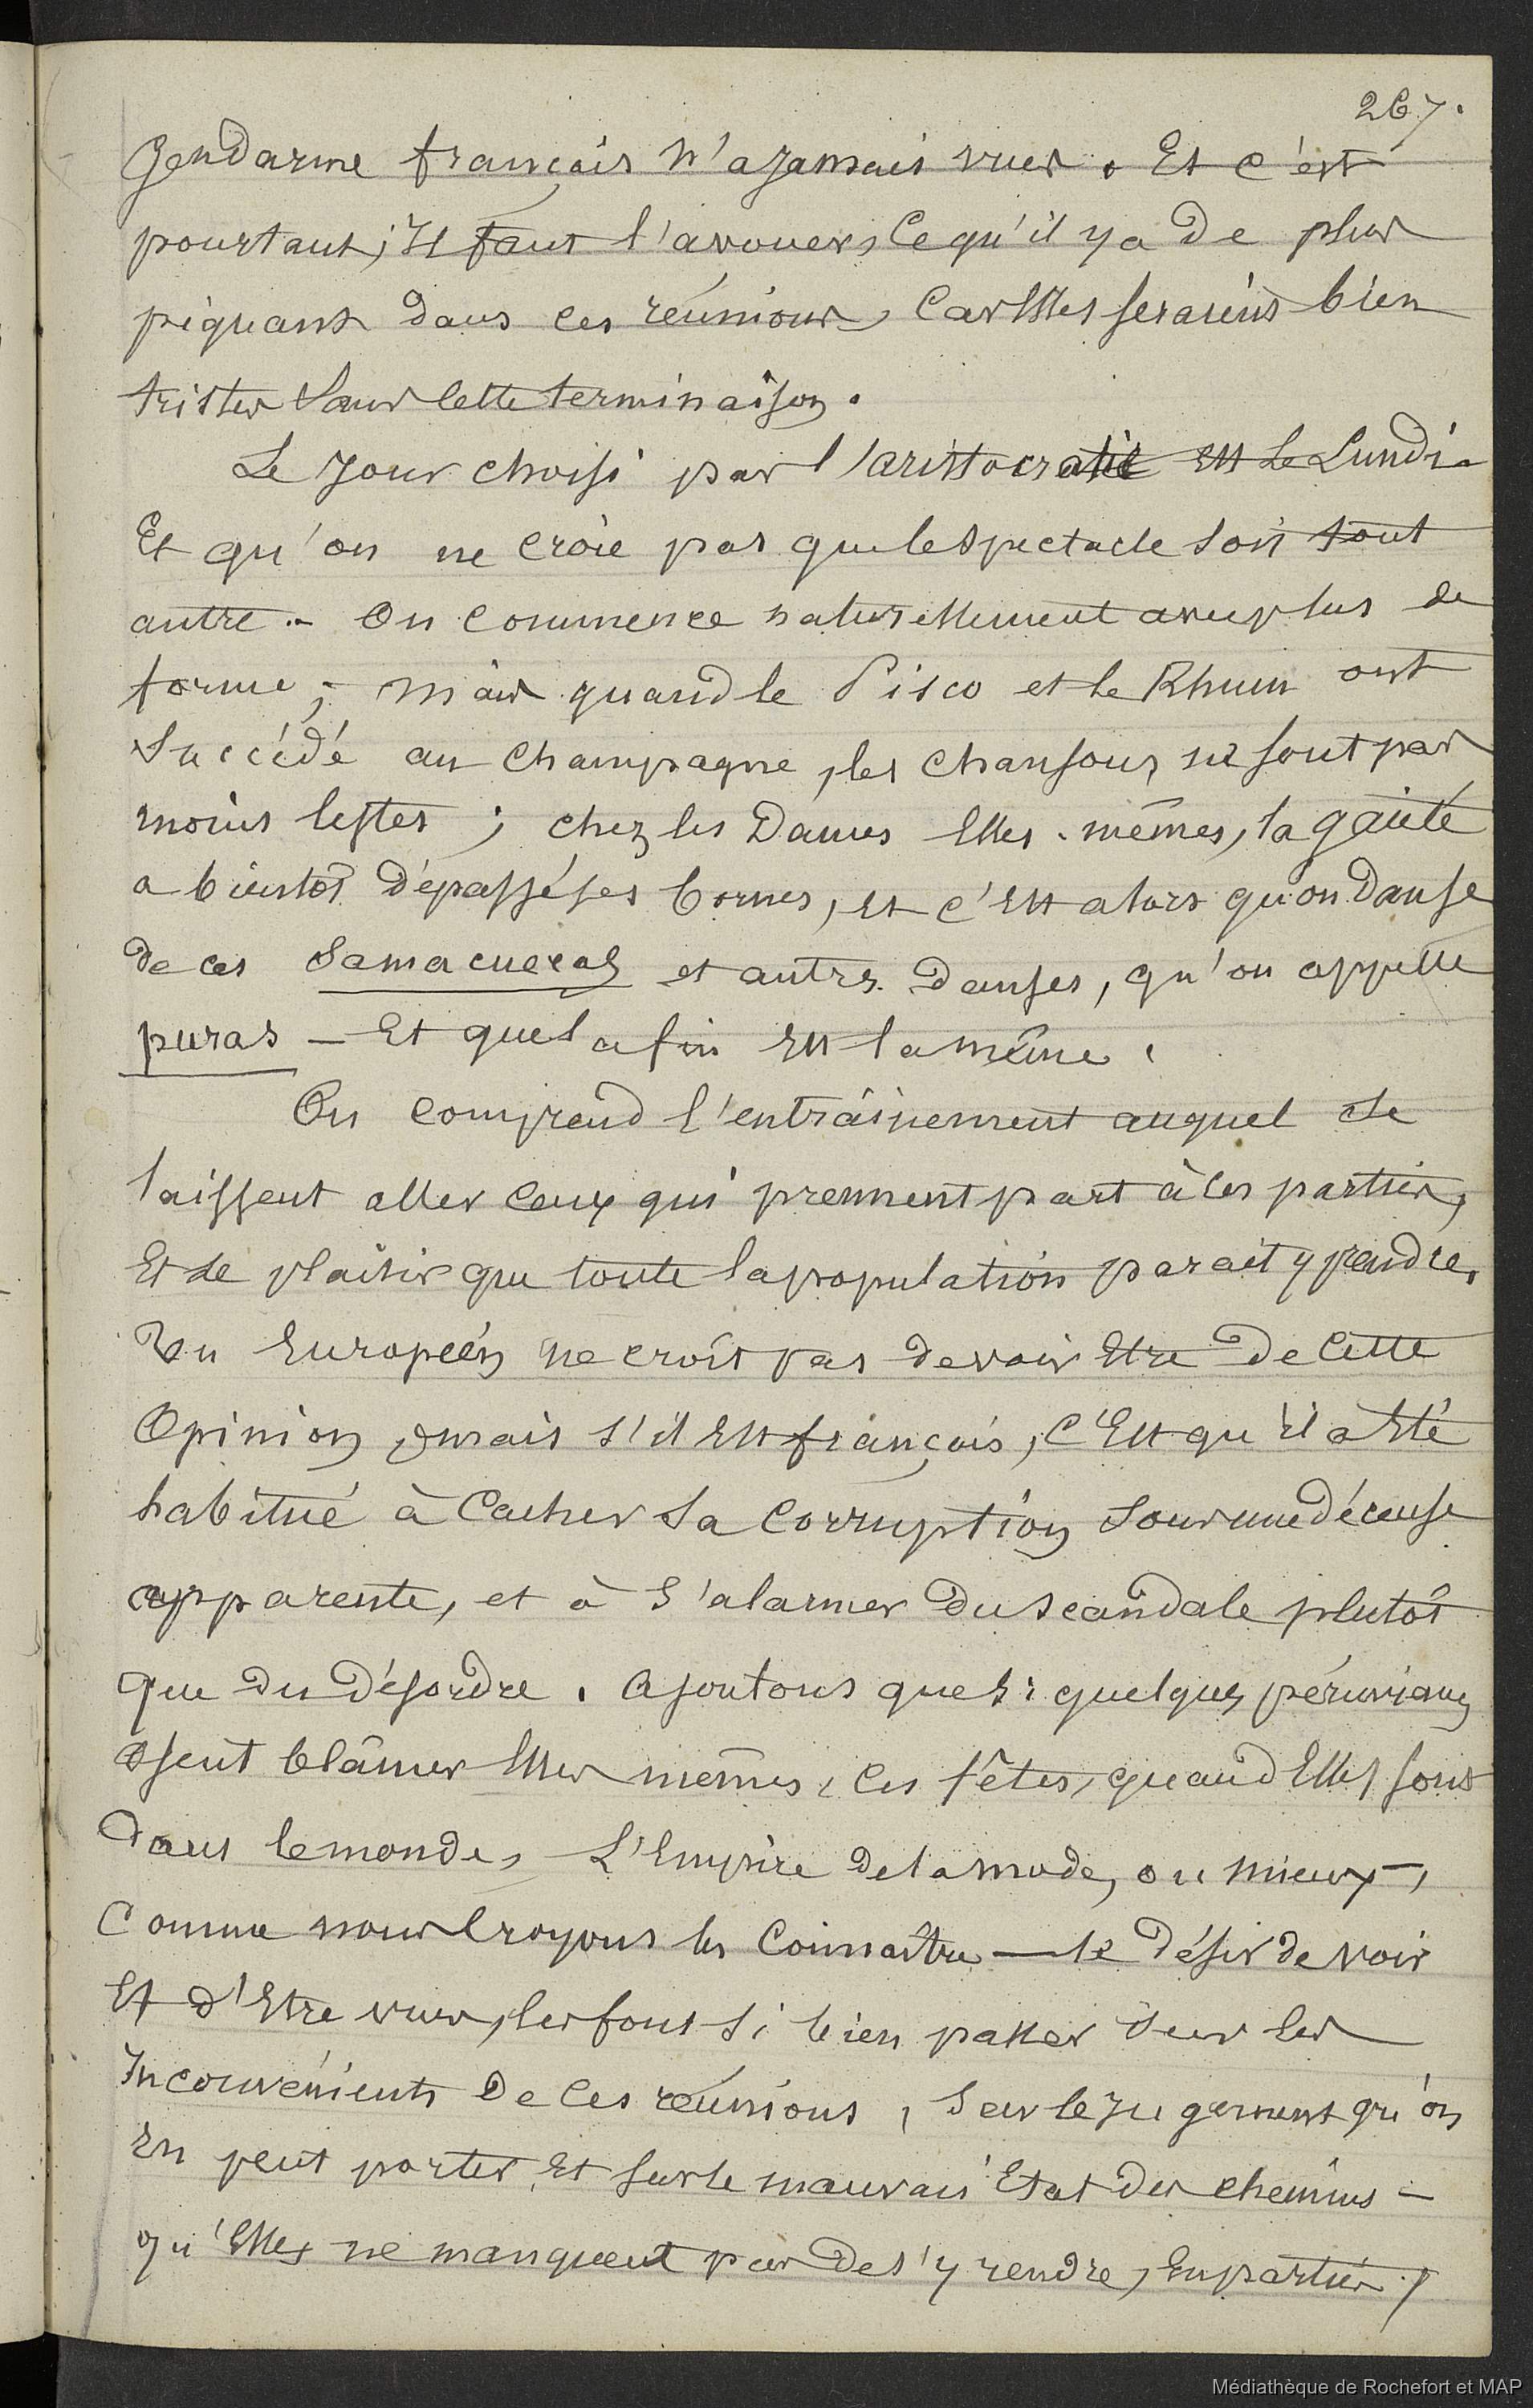 267.
Gendarme français n'a jamais vues. Et c'est
pourtant, il faut l'avouer, ce qu'il y a de plus
piquant dans ces réunions, car Elles seraient bien
tristes sans cette terminaison.
Le jour choisi par l'aristocratie Est le Lundi.
Et qu'on ne croie pas que le spectacle soit tout
autre. - On commence naturellement avec plus de
forme ; mais quand le Pisco et le Rhum ont
succédé au champagne, les chansons ne sont pas
moins lestes ; chez les Dames Elles-mêmes, la gaieté
a bientôt dépassé ses bornes, et c'Est alors qu'on danse
de ces Samacuecas et autres Danses, qu'on appelle
puras - Et que la fin Est la même.
On comprend l'entraînement auquel se
laissent aller ceux qui prennent part à ces parties,
Et le plaisir que toute la population parait y prendre.
Un Européen ne croit pas devoir Etre de cette
Opinion, mais s'il Est français, c'Est qu'il a Eté
habitué à cacher sa corruption sous une décence
apparente, et à s'alarmer du scandale plutôt
que du désordre. Ajoutons que si quelques péruviens
osent blâmer Elles mêmes, ces fêtes, quand Elles sont
dans le monde, L'Empire de la mode, ou mieux,
comme nous croyons les connaître — le désir de voir
Et d'Etre vues, les font si bien passer sur les
Inconvénients de ces réunions, sur le jugement qu'on
En peut porter, Et sur le mauvais Etat des chemins -
qu'Elles ne manquent pas de s'y rendre, En parties /
Médiathèque de Rochefort et MAP